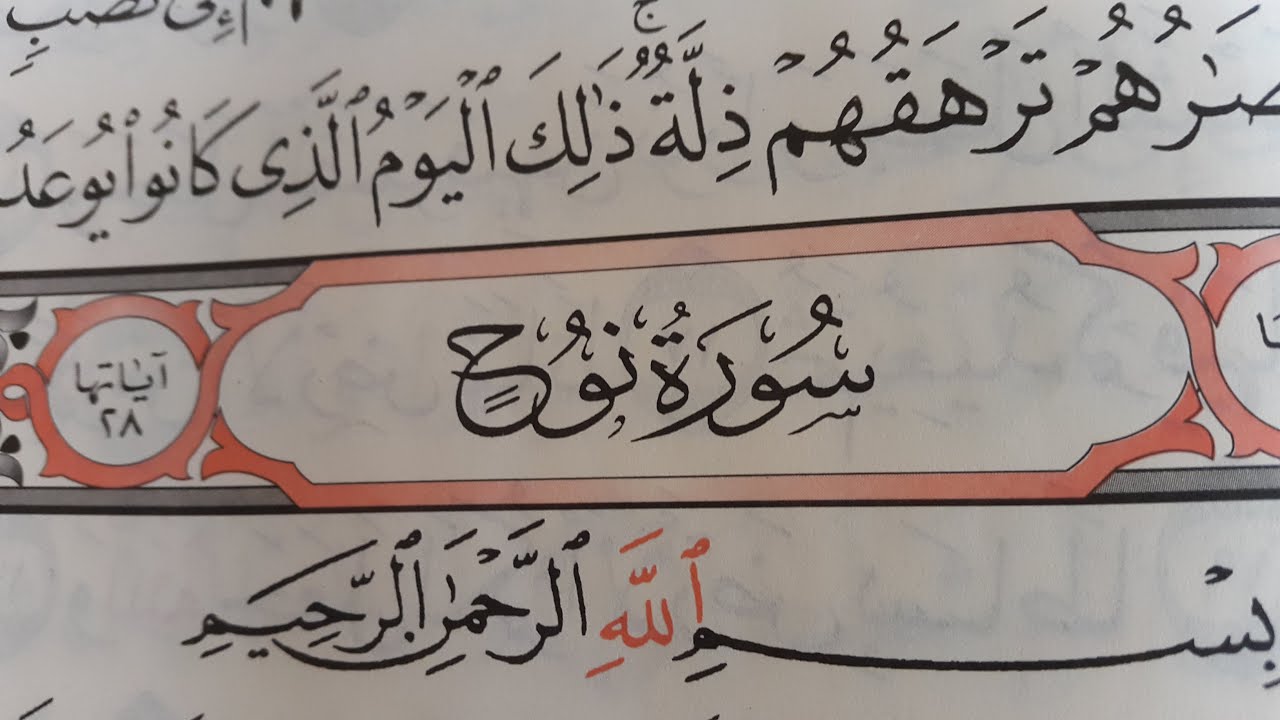 تَرْهَقُهُمْ ذِلَّةٌۚ ذَٰلِكَ ٱلْيَوْمُ ٱلَّذِى كَانُوا۟
سُورَةُ نُوحٍ
آياتها ٢٨
بِسْمِ ٱللَّهِ ٱلرَّحْمَٰنِ ٱلرَّحِيمِ